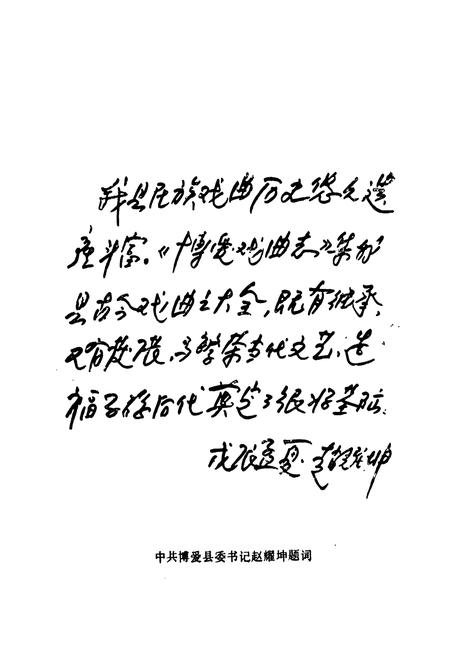 我县民族戏曲历史悠久遗
产丰富。《博爱戏曲志》集我
县古今戏曲之大全,既有继承,
又有发展,为繁荣当代文艺,造
福子孙后代奠定了很好基础。
戊辰孟夏·赵耀坤
中共博爱县委书记赵耀坤题词